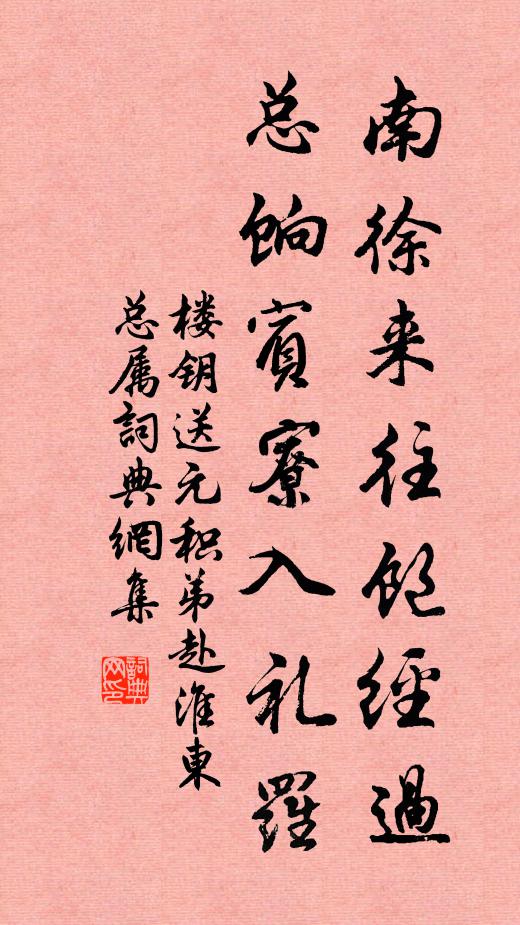 南徐来往饱經過
总饷賓寮入礼羅
楼钥送元积弟赴淮東
总属詞典網集
詞典网印